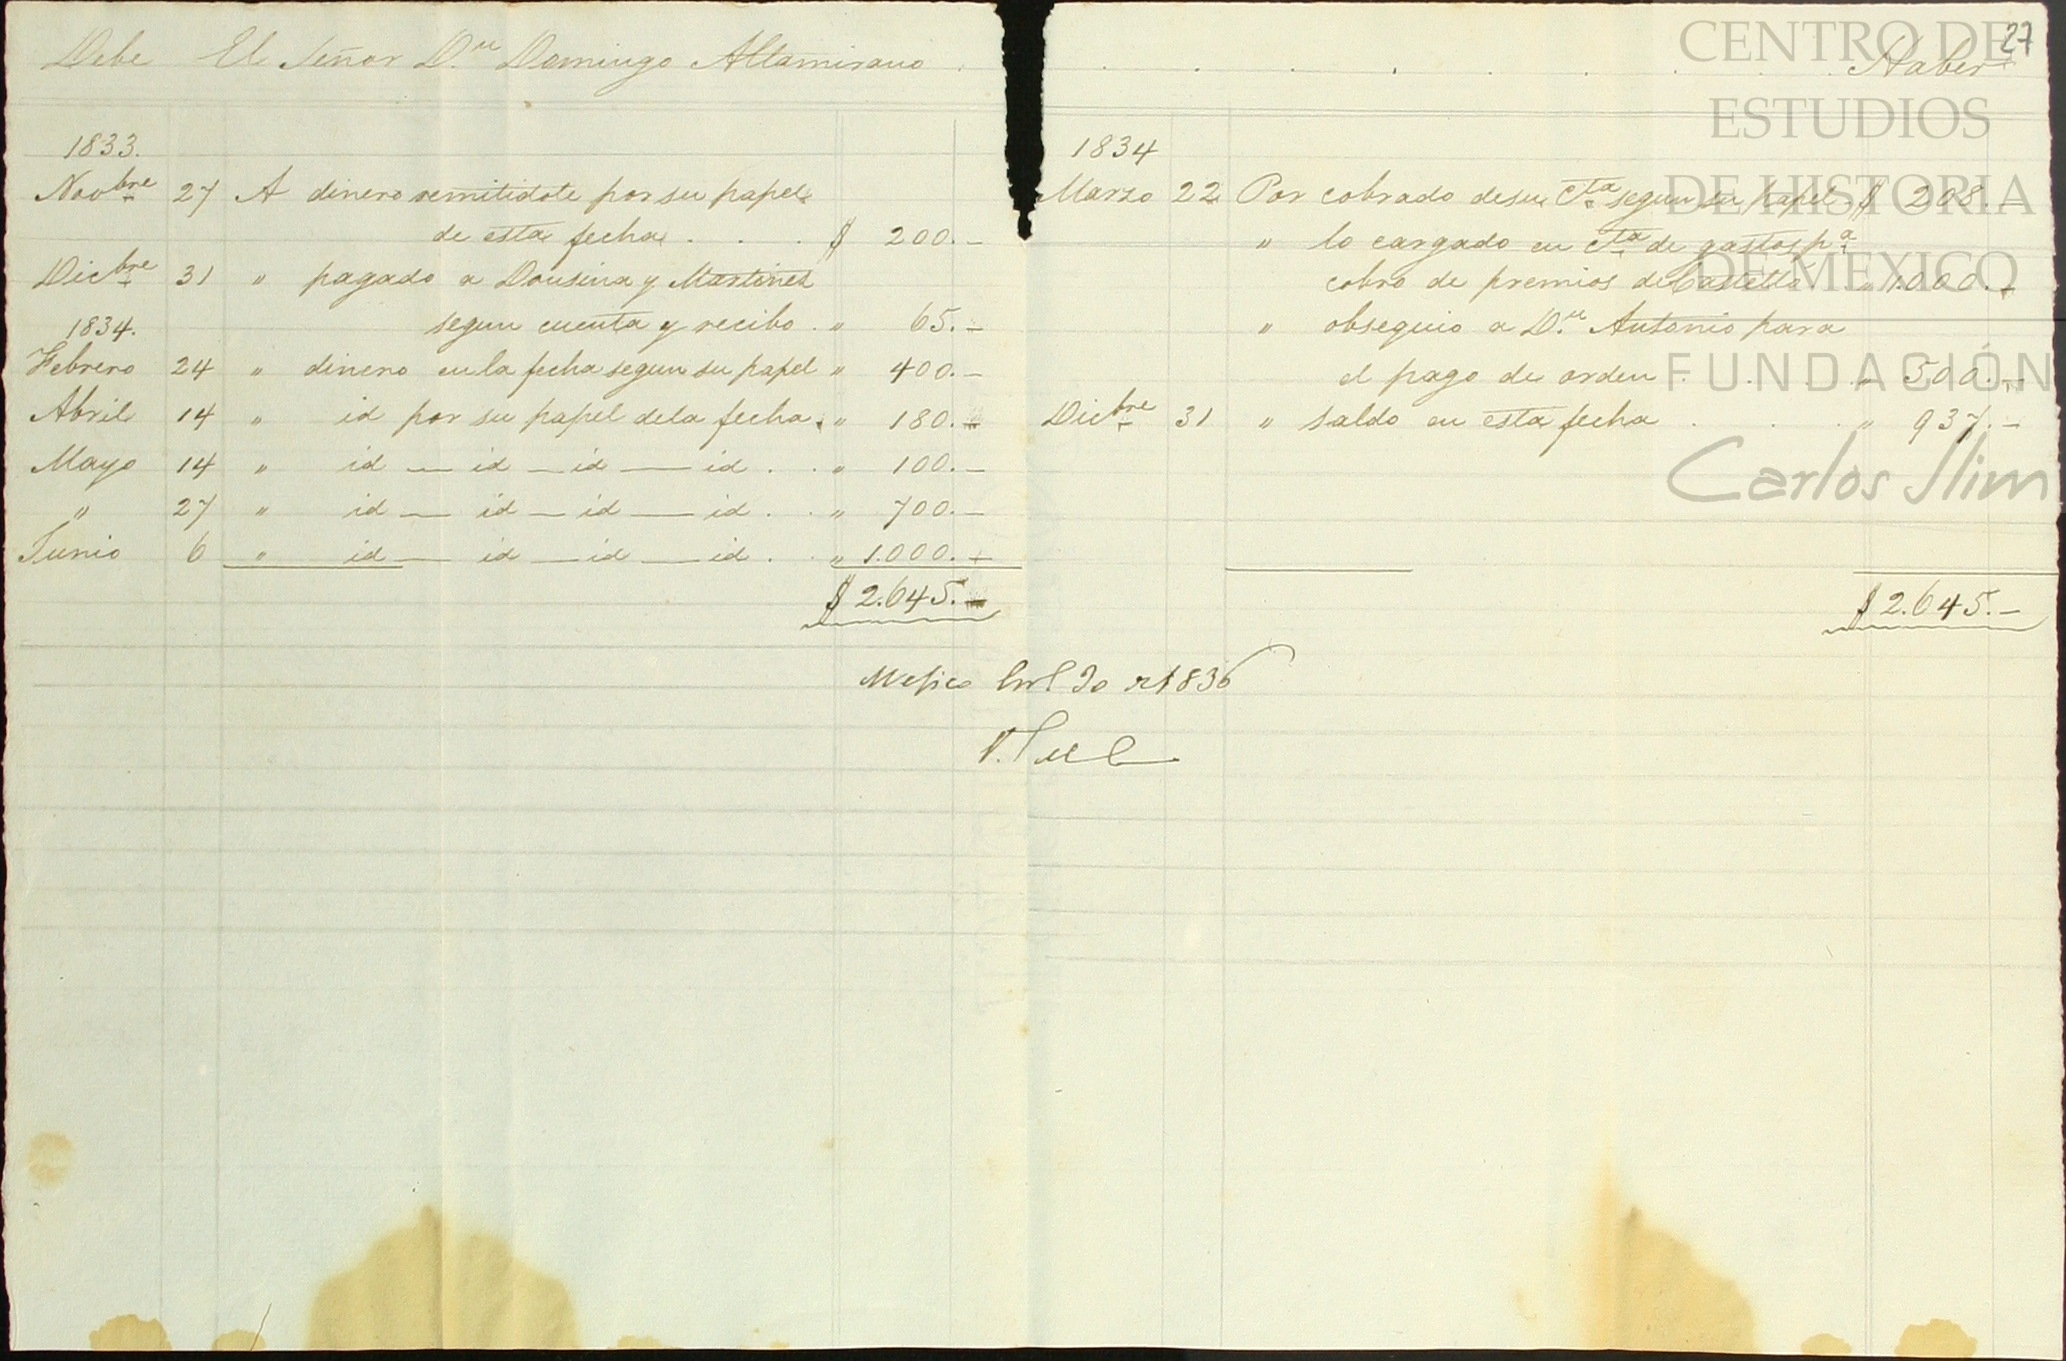 27
Debe El Señor D.n Domingo Altamirano . . . . . . . . . Haber
1833.
Novbre 27 A dinero remitidole por su papel
de esta fecha . . . $ 200.—
Dicbre 31 " pagado a Dousina y Martinez
1834. segun cuenta y recibo . " 65.—
Febrero 24 " dinero en la fecha segun su papel " 400.—
Abril 14 " id por su papel de la fecha . " 180.—
Mayo 14 " id — id — id — id . . " 100.—
" 27 " id — id — id — id . . " 700.—
Junio 6 " id — id — id — id . . " 1.000.—
$ 2.645.—
1834
Marzo 22 Por cobrado de su Cta segun su papel $ 208.—
" lo cargado en Cta de gastos pa
cobro de premios de Castelló " 1.000.—
" obsequio a D.n Antonio para
el pago de orden . . . . " 500.—
Dicbre 31 " saldo en esta fecha . . . " 937.—
$ 2.645.—
1836
CENTRO DE
ESTUDIOS
DE HISTORIA
DE MEXICO
FUNDACIÓN
Carlos Slim